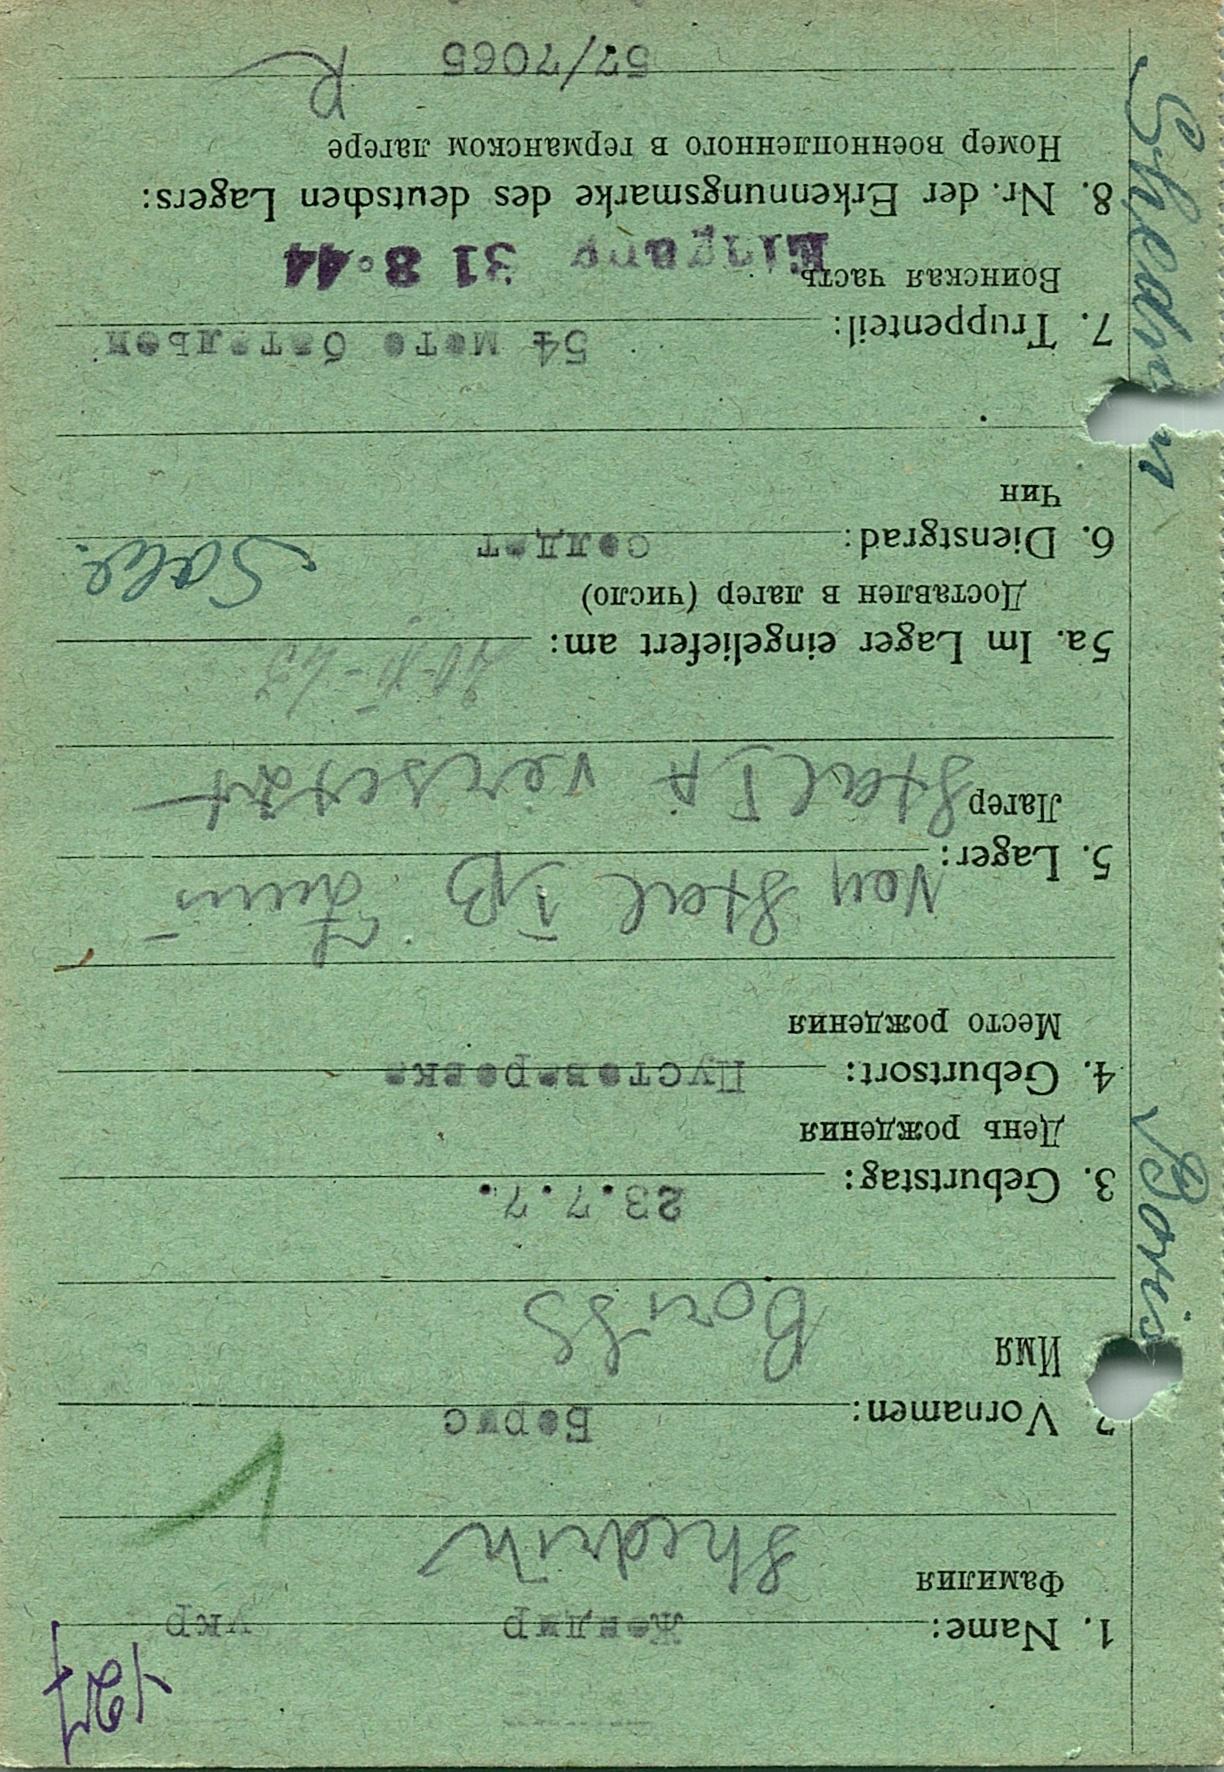 127
1. Name: Жендир укр
Фамилия
Shedrin
2 Vornamen: Борис
Имя
Boriss
3. Geburtstag: 23.7.7.
День рождения
4. Geburtsort: Пустоваровка
Место рождения
5. Lager: Von Stal IB
Лагер
Stal IA versetzt
5a. Im Lager eingeliefert am:
Доставлен в лагер (число)
6. Dienstgrad: солдат
Чин
7. Truppenteil: 54 мото батальон
Воинская часть
Eingang 31 8. 44
8. Nr. der Erkennungsmarke des deutschen Lagers:
Номер военнопленного в германском лагере
57/7065 R
Boris
Shedrin